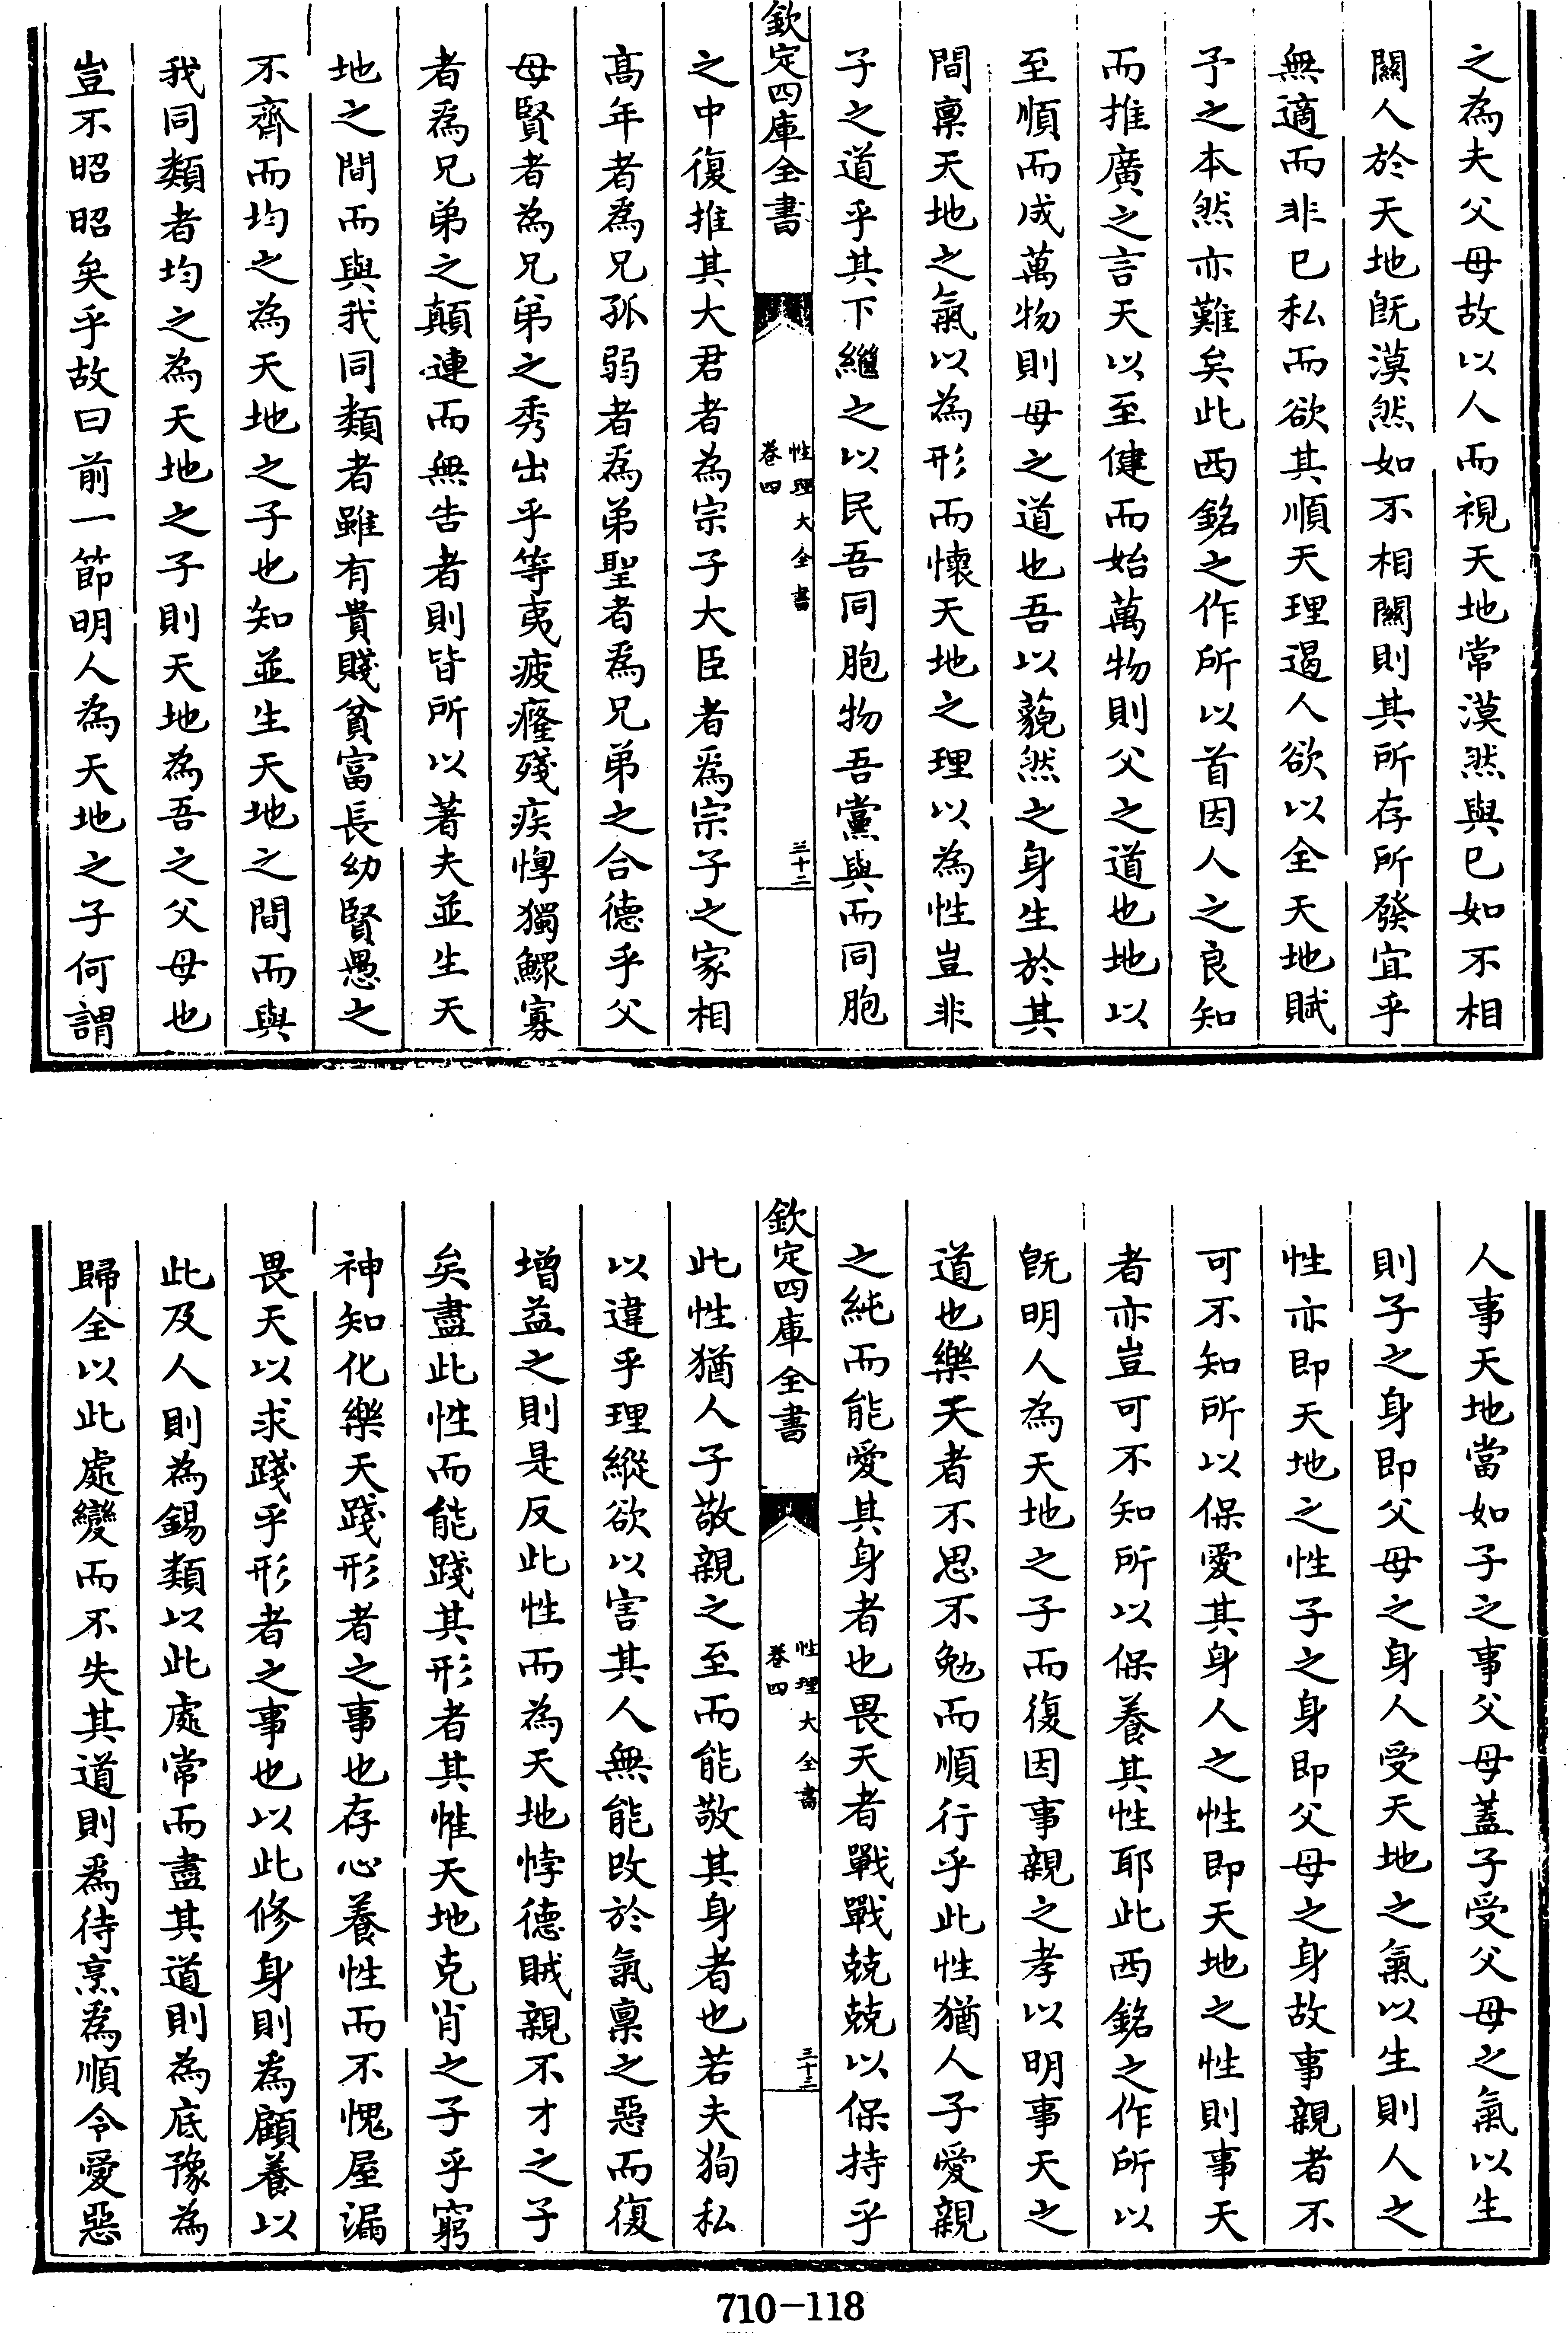 之為夫父母故以人而視天地常漠然與已如不相
關人於天地既漠然如不相關則其所存所發宜乎
無適而非已私而欲其順天理遏人欲以全天地賦
予之本然亦難矣此西銘之作所以首因人之良知
而推廣之言天以至健而始萬物則父之道也地以
至順而成萬物則母之道也吾以藐然之身生於其
間稟天地之氣以為形而懷天地之理以為性豈非
子之道乎其下繼之以民吾同胞物吾黨與而同胞
欽定四庫全書
性理大全書
卷四
三十二
之中復推其大君者為宗子大臣者為宗子之家相
高年者為兄孤弱者為弟聖者為兄弟之合德乎父
母賢者為兄弟之秀出乎等夷疲癃殘疾惸獨鰥寡
者為兄弟之顛連而無告者則皆所以著夫並生天
地之間而與我同類者雖有貴賤貧富長幼賢愚之
不齊而均之為天地之子也知並生天地之間而與
我同類者均之為天地之子則天地為吾之父母也
豈不昭昭矣乎故曰前一節明人為天地之子何謂
人事天地當如子之事父母蓋子受父母之氣以生
則子之身即父母之身人受天地之氣以生則人之
性亦即天地之性子之身即父母之身故事親者不
可不知所以保愛其身人之性即天地之性則事天
者亦豈可不知所以保養其性耶此西銘之作所以
既明人為天地之子而復因事親之孝以明事天之
道也樂天者不思不勉而順行乎此性猶人子愛親
之純而能愛其身者也畏天者戰戰兢兢以保持乎
欽定四庫全書
性理大全書
卷四
三十三
此性猶人子敬親之至而能敬其身者也若夫狥私
以違乎理縱欲以害其人無能改於氣稟之惡而復
增益之則是反此性而為天地悖德賊親不才之子
矣盡此性而能踐其形者其惟天地克肖之子乎窮
神知化樂天踐形者之事也存心養性而不愧屋漏
畏天以求踐乎形者之事也以此修身則為顧養以
此及人則為錫類以此處常而盡其道則為底豫為
歸全以此處變而不失其道則為待烹為順令愛惡
710-118